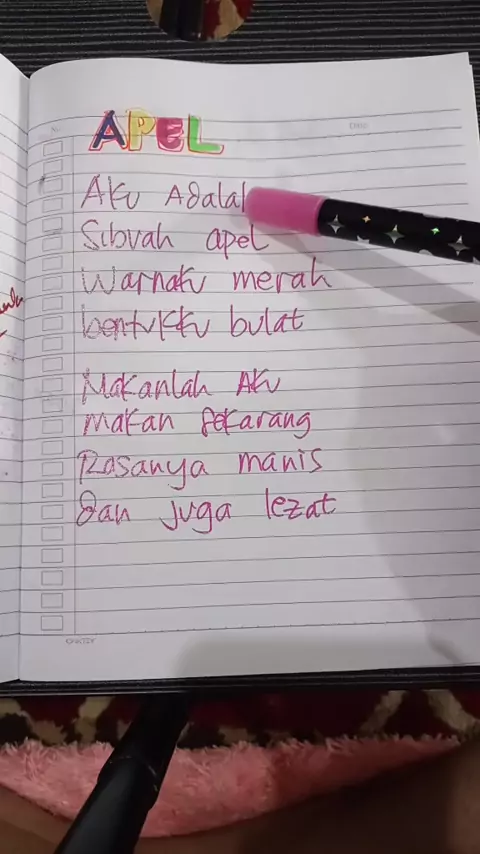 APEL
Aku Adalah
Sibuah apel
Warnaku merah
bentukku bulat
Makanlah Aku
Makan sekarang
Rasanya manis
dan juga lezat